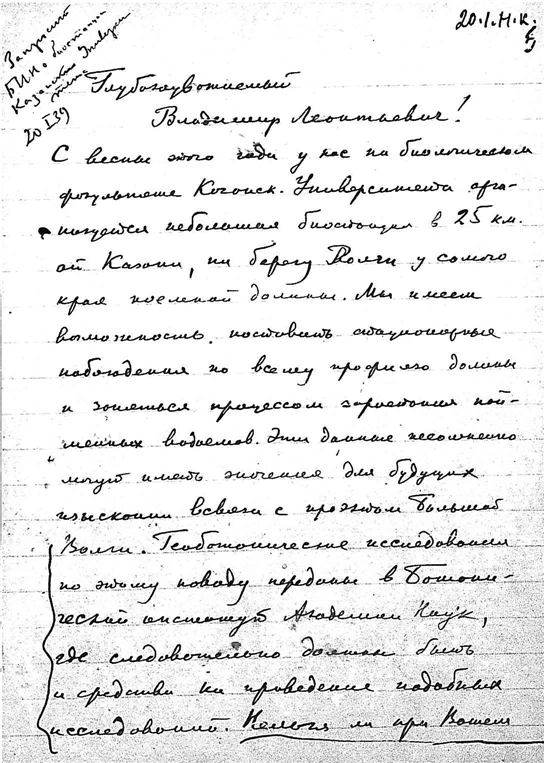 20.I.Н.К.
Запросить
БИН о биостанции
Казанского
Универс
20 I 39
Глубокоуважаемый
Владимир Леонтьевич!
С весны этого года у нас на биологическом
факультете Казанск. Университета орга-
низуется небольшая биостанция в 25 км.
от Казани, на берегу Волги у самого
края поемной долины. Мы имеем
возможность поставить стационарные
наблюдения по всему профилю долины
и заняться процессом зарастания пой-
менных водоемов. Эти данные несомненно
могут иметь значение для будущих
изысканий в связи с проэктом Большой
Волги. Геоботанические исследования
по этому поводу переданы в Ботани-
ческий институт Академии Наук,
где следовательно должны быть
и средства на проведение подобных
исследований. Нельзя ли при Вашем